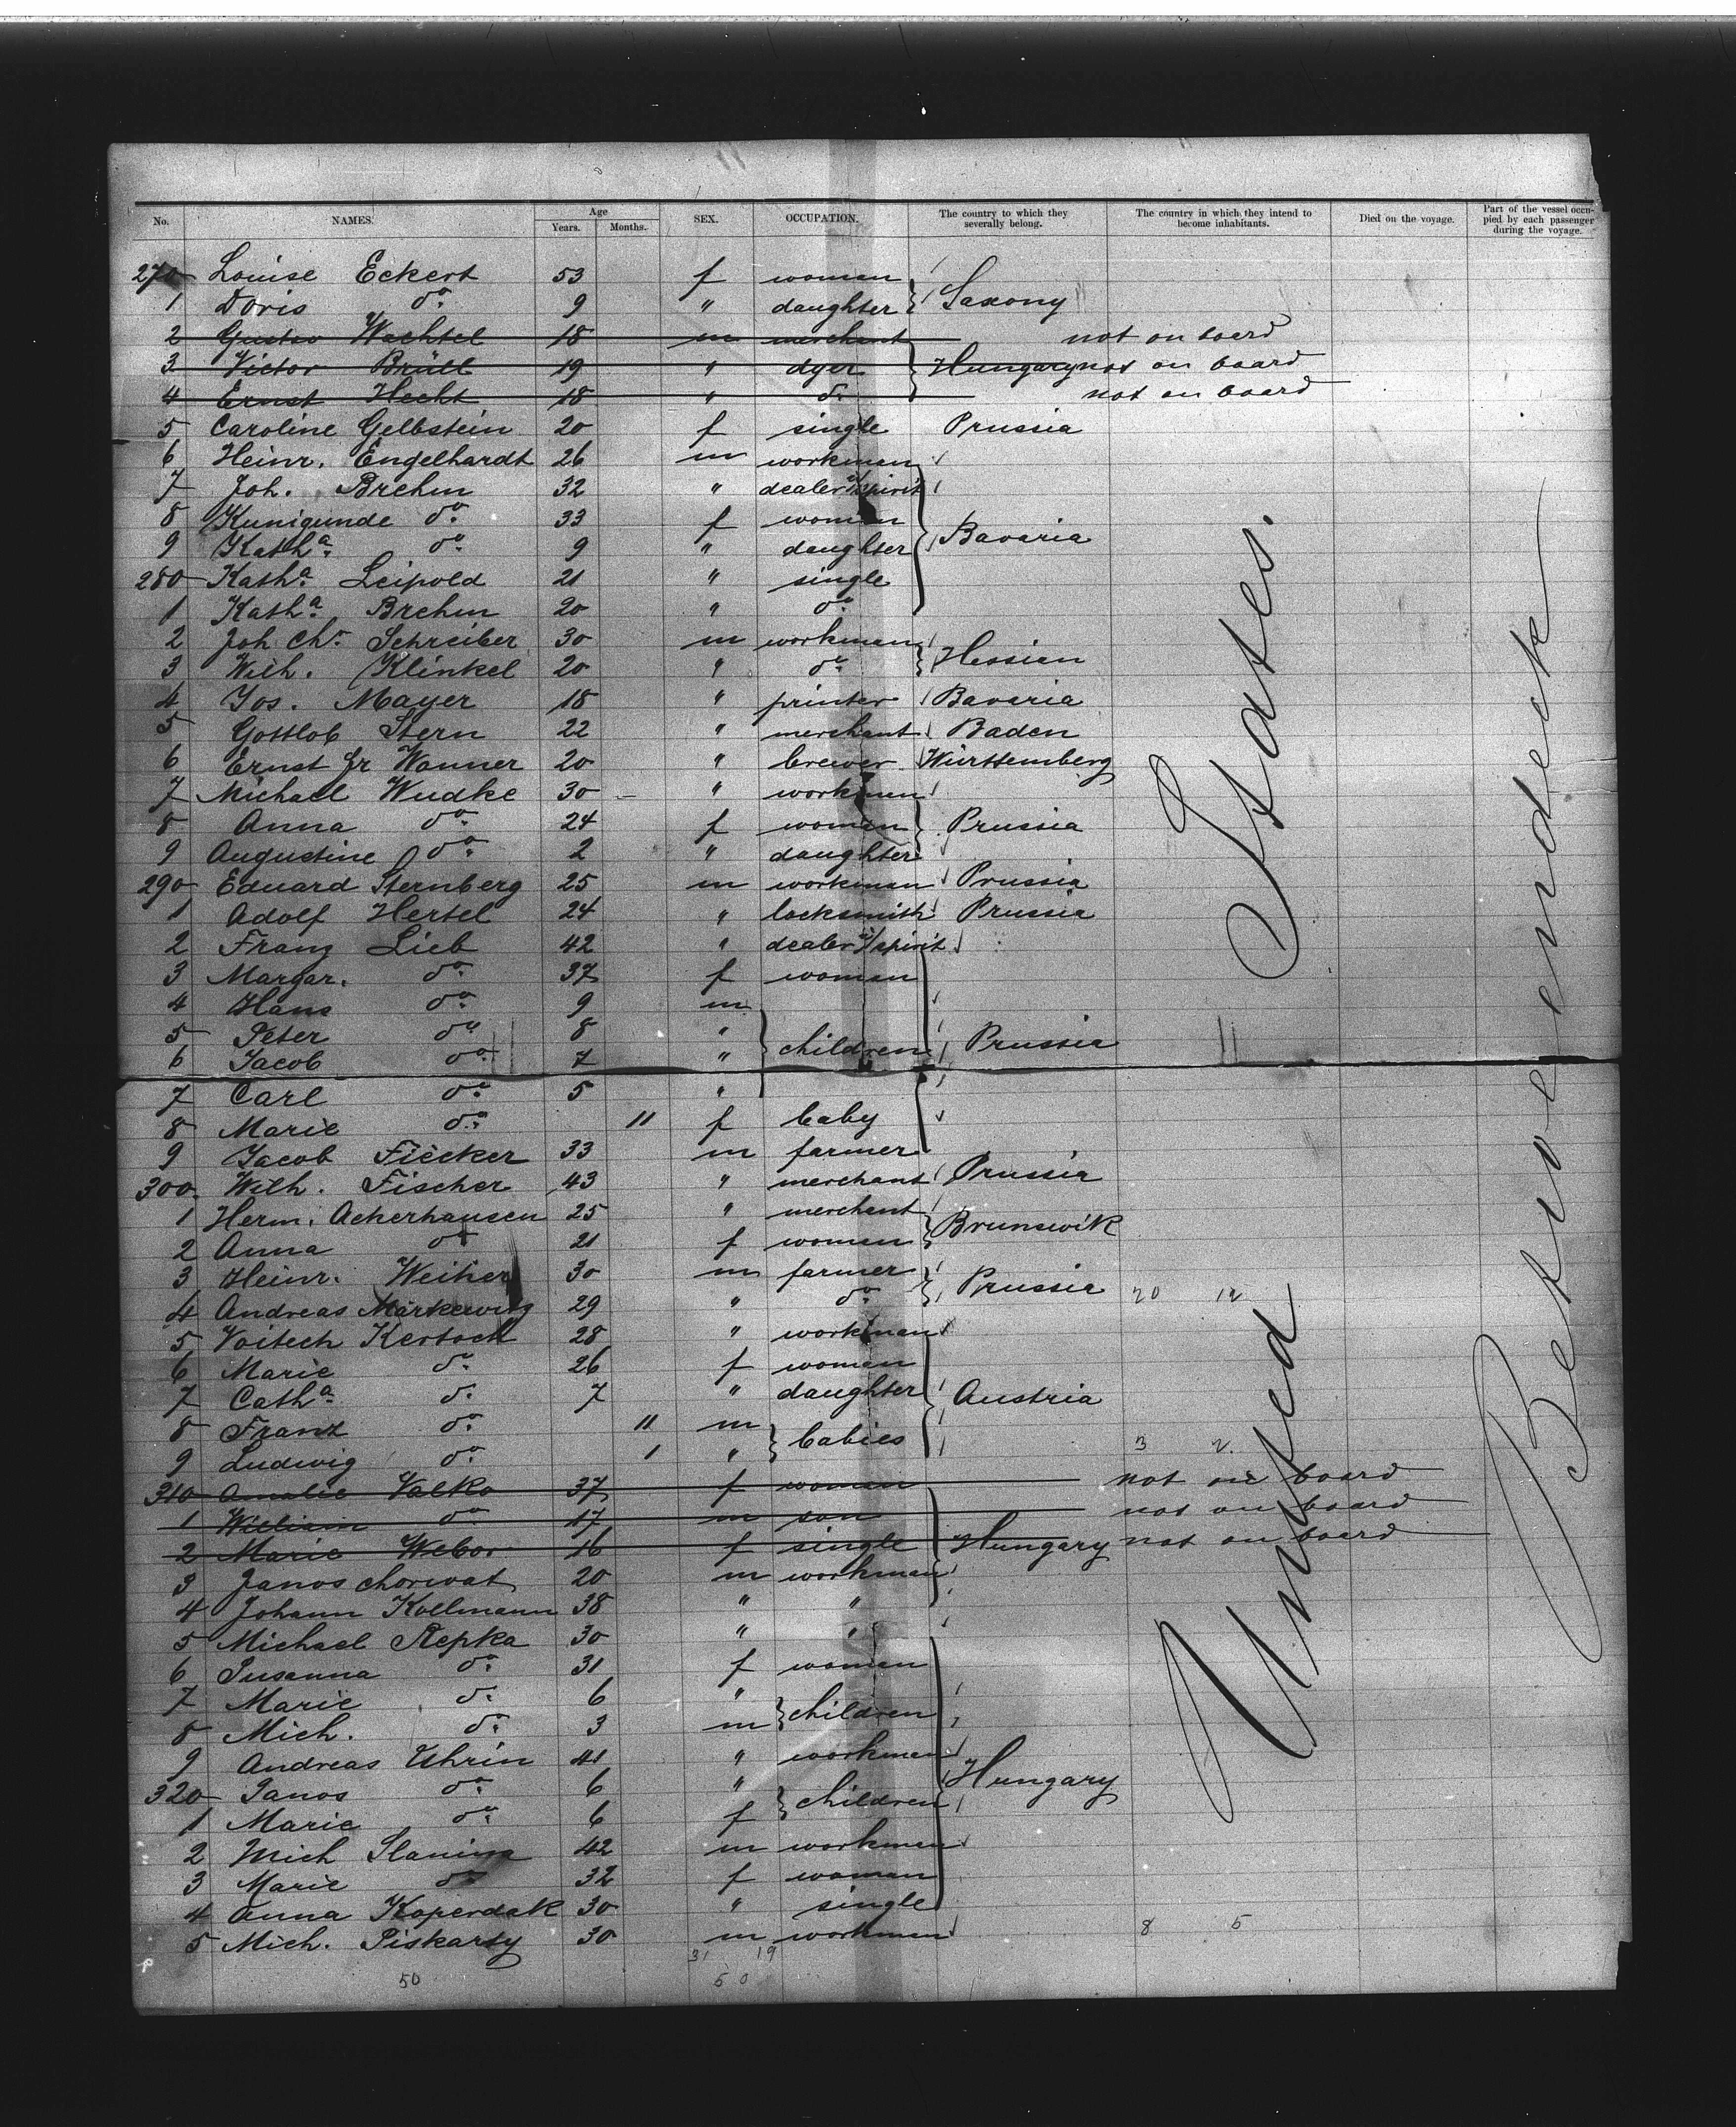 No. NAMES. Age Years. Months. SEX. OCCUPATION. The country to which they severally belong. The country in which they intend to become inhabitants. Died on the voyage. Part of the vessel occupied by each passenger during the voyage.
270 Louise Eckert 53 f woman
1 Doris do. 9 " daughter Saxony
2 Gustav Wachtel 18 m merchant not on board
3 Victor Brüll 19 " dyer Hungary not on board
4 Ernst Hecht 18 " do. not on board
5 Caroline Gelbstein 20 f single Prussia
6 Heinr. Engelhardt 26 m workman
7 Joh. Brehm 32 " dealer spirit
8 Kunigunde do. 33 f woman
9 Katha. do. 9 " daughter Bavaria
280 Katha. Leipold 21 " single
1 Katha. Brehm 20 " do.
2 Joh. Chr. Schreiber 30 m workman
3 Wilh. Klinkel 20 " do. Hessien
4 Jos. Mayer 18 " printer Bavaria
5 Gottlob Stern 22 " merchant Baden
6 Ernst Fr Wanner 20 " brewer Württemberg
7 Michael Wudke 30 " workman
8 Anna do. 24 f woman Prussia
9 Augustine do. 2 " daughter
290 Eduard Sternberg 25 m workman Prussia
1 Adolf Hertel 24 " locksmith Prussia
2 Franz Lieb 42 " dealer spirit
3 Margar. do. 37 f woman
4 Hans do. 9 m
5 Peter do. 8 "
6 Jacob do. 7 " children Prussia
7 Carl do. 5 "
8 Marie do. 11 f baby
9 Jacob Fiecker 33 m farmer
300 Wilh. Fischer 43 " merchant Prussia
1 Herm. Ackerhausen 25 " merchant
2 Anna do 21 f women Brunswik
3 Heinr. Weiher 30 m farmer
4 Andreas Markewitz 29 " do. Prussia 20 12
5 Voitech Kertoch 28 " workman
6 Marie do. 26 f woman
7 Catha. do. 7 " daughter Austria
8 Franz do. 11 m
9 Ludwig do. 1 " babies 3 2
310 Amalie Valko 37 f woman not on board
1 William do. 17 m son not on board
2 Marie Weber 16 f single Hungary not on board
3 Janos Chorwat 20 m workman
4 Johann Kollmann 38 " "
5 Michael Repka 30 " "
6 Susanna do. 31 f woman
7 Marie do. 6 "
8 Mich. do. 3 m children
9 Andreas Uhrin 41 " workman
320 Janos do. 6 " Hungary
1 Marie do. 6 f children
2 Mich Slanina 42 m workman
3 Marie do. 32 f woman
4 Anna Koperdak 30 " single
5 Mich. Piskarty 30 m workman 8 5
31 19
50 50
United States.
Between deck